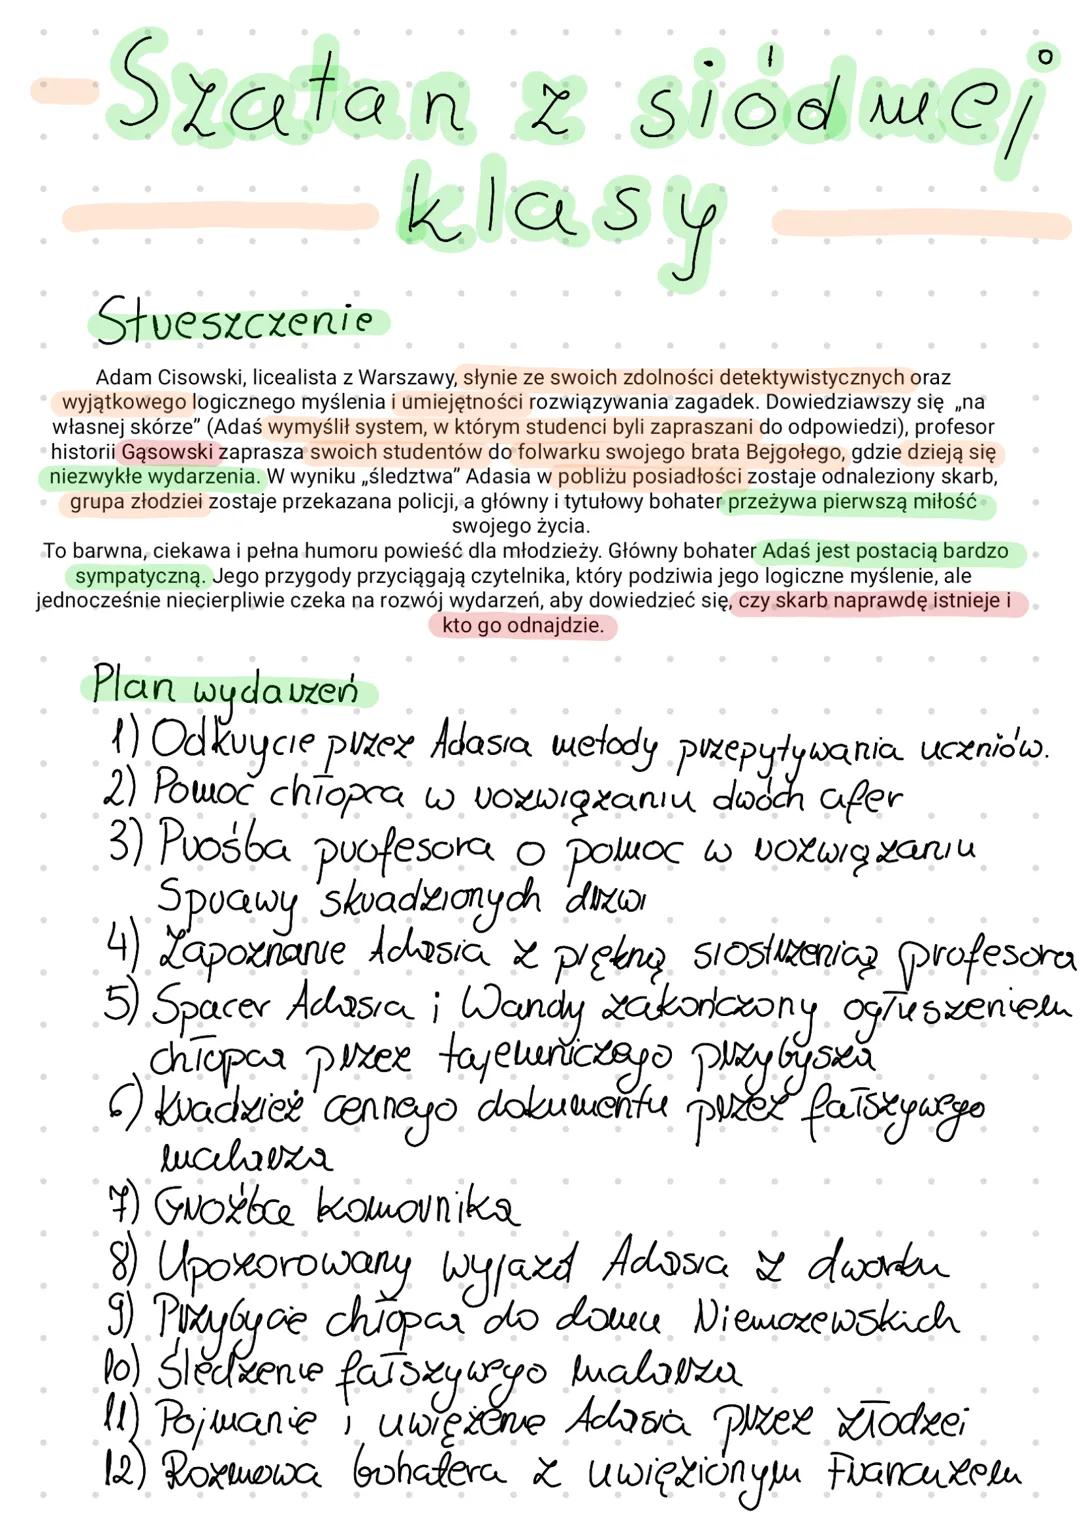 Szatan z siódmej
klasy
Streszczenie
Adam Cisowski, licealista z Warszawy, słynie ze swoich zdolności detektywistycznych oraz
wyjątkowego logicznego myślenia i umiejętności rozwiązywania zagadek. Dowiedziawszy się „na
własnej skórze” (Adaś wymyślił system, w którym studenci byli zapraszani do odpowiedzi), profesor
historii Gąsowski zaprasza swoich studentów do folwarku swojego brata Bejgołego, gdzie dzieją się
niezwykłe wydarzenia. W wyniku „śledztwa” Adasia w pobliżu posiadłości zostaje odnaleziony skarb,
grupa złodziei zostaje przekazana policji, a główny i tytułowy bohater przeżywa pierwszą miłość
swojego życia.
To barwna, ciekawa i pełna humoru powieść dla młodzieży. Główny bohater Adaś jest postacią bardzo
sympatyczną. Jego przygody przyciągają czytelnika, który podziwia jego logiczne myślenie, ale
jednocześnie niecierpliwie czeka na rozwój wydarzeń, aby dowiedzieć się, czy skarb naprawdę istnieje i
kto go odnajdzie.
Plan wydarzeń
1) Odkrycie przez Adasia metody przepytywania uczniów.
2) Pomoc chłopca w rozwiązaniu dwóch afer
3) Prośba profesora o pomoc w rozwiązaniu
Sprawy skradzionych drzwi
4) Zapoznanie Adasia z piękną siostrzenicą profesora
5) Spacer Adasia i Wandy zakończony ogłuszeniem
chłopca przez tajemniczego przybysza
6) Kradzież cennego dokumentu przez fałszywego
malarza
7) Groźba komornika
8) Upozorowany wyjazd Adasia z dworku
9) Przybycie chłopca do domu Niemczewskich
10) Śledzenie fałszywego malarza
11) Pojmanie i uwięzenie Adasia przez złodzei
12) Rozmowa bohatera z uwięzionym Francuzem